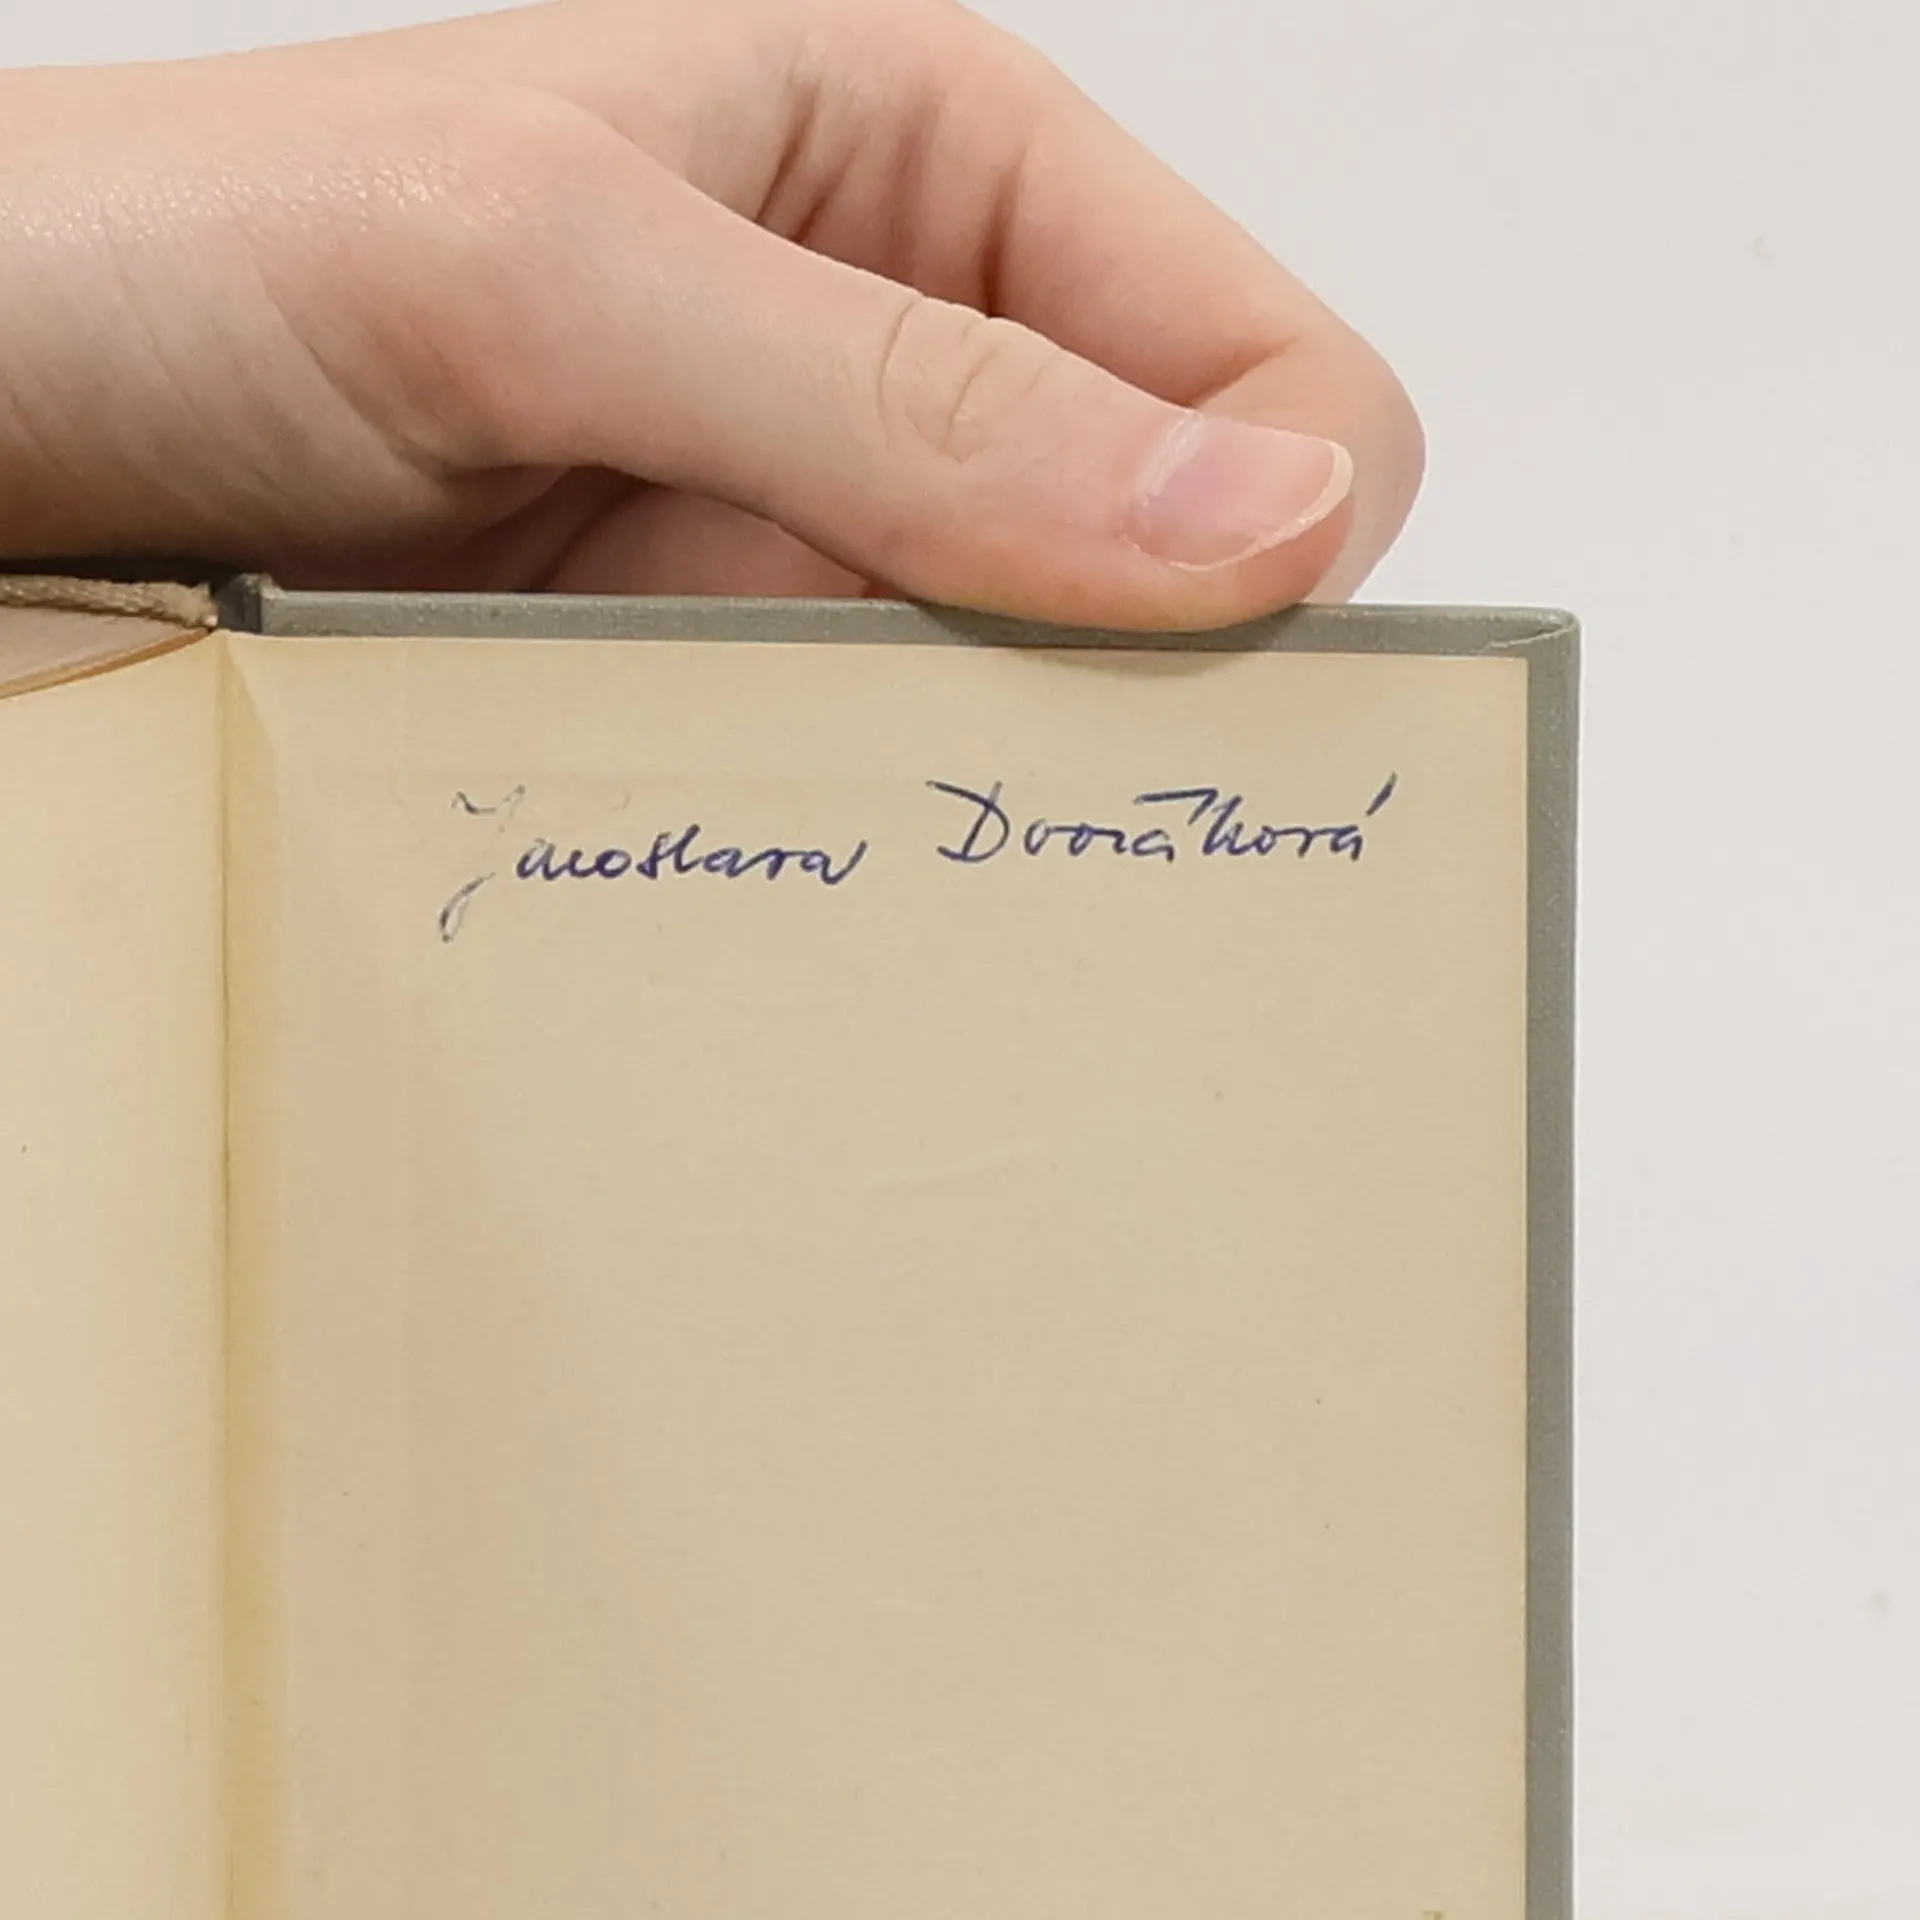 Jaroslava Dvořáková